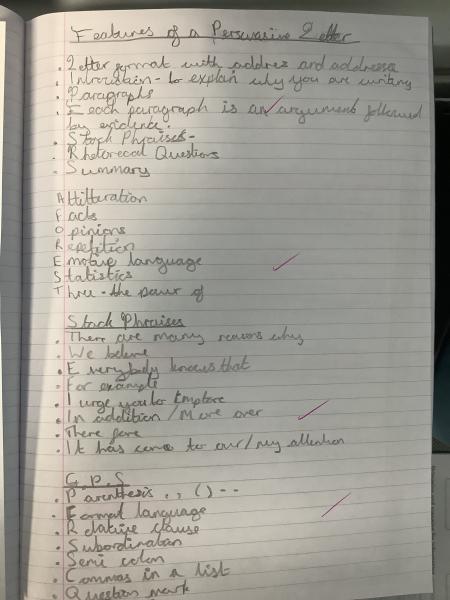 Features of a Persuasive Letter
. Letter format with addres and addressa
. Introduction - to explain why you are writing
. Paragraphs
. E each paragraph is an argument followed
by evidence.
. Stock Phraises -
. Rhetorecal Questions
. Summary
Attitteration
Facts
Opinions
Repetition
Emotive language
Statistics
Three - the power of
Stock Phraises
. There are many reasons why
. We believe
. Everybody knows that
. For example
. I urge you to Implore
. In addition / More over
. There fore
. It has come to our/my attention
G.P.S
. Parenthesis , , ( ) - -
. Formal language
. Relative clause
. Subordination
. Semi colon
. Commas in a list
. Question mark